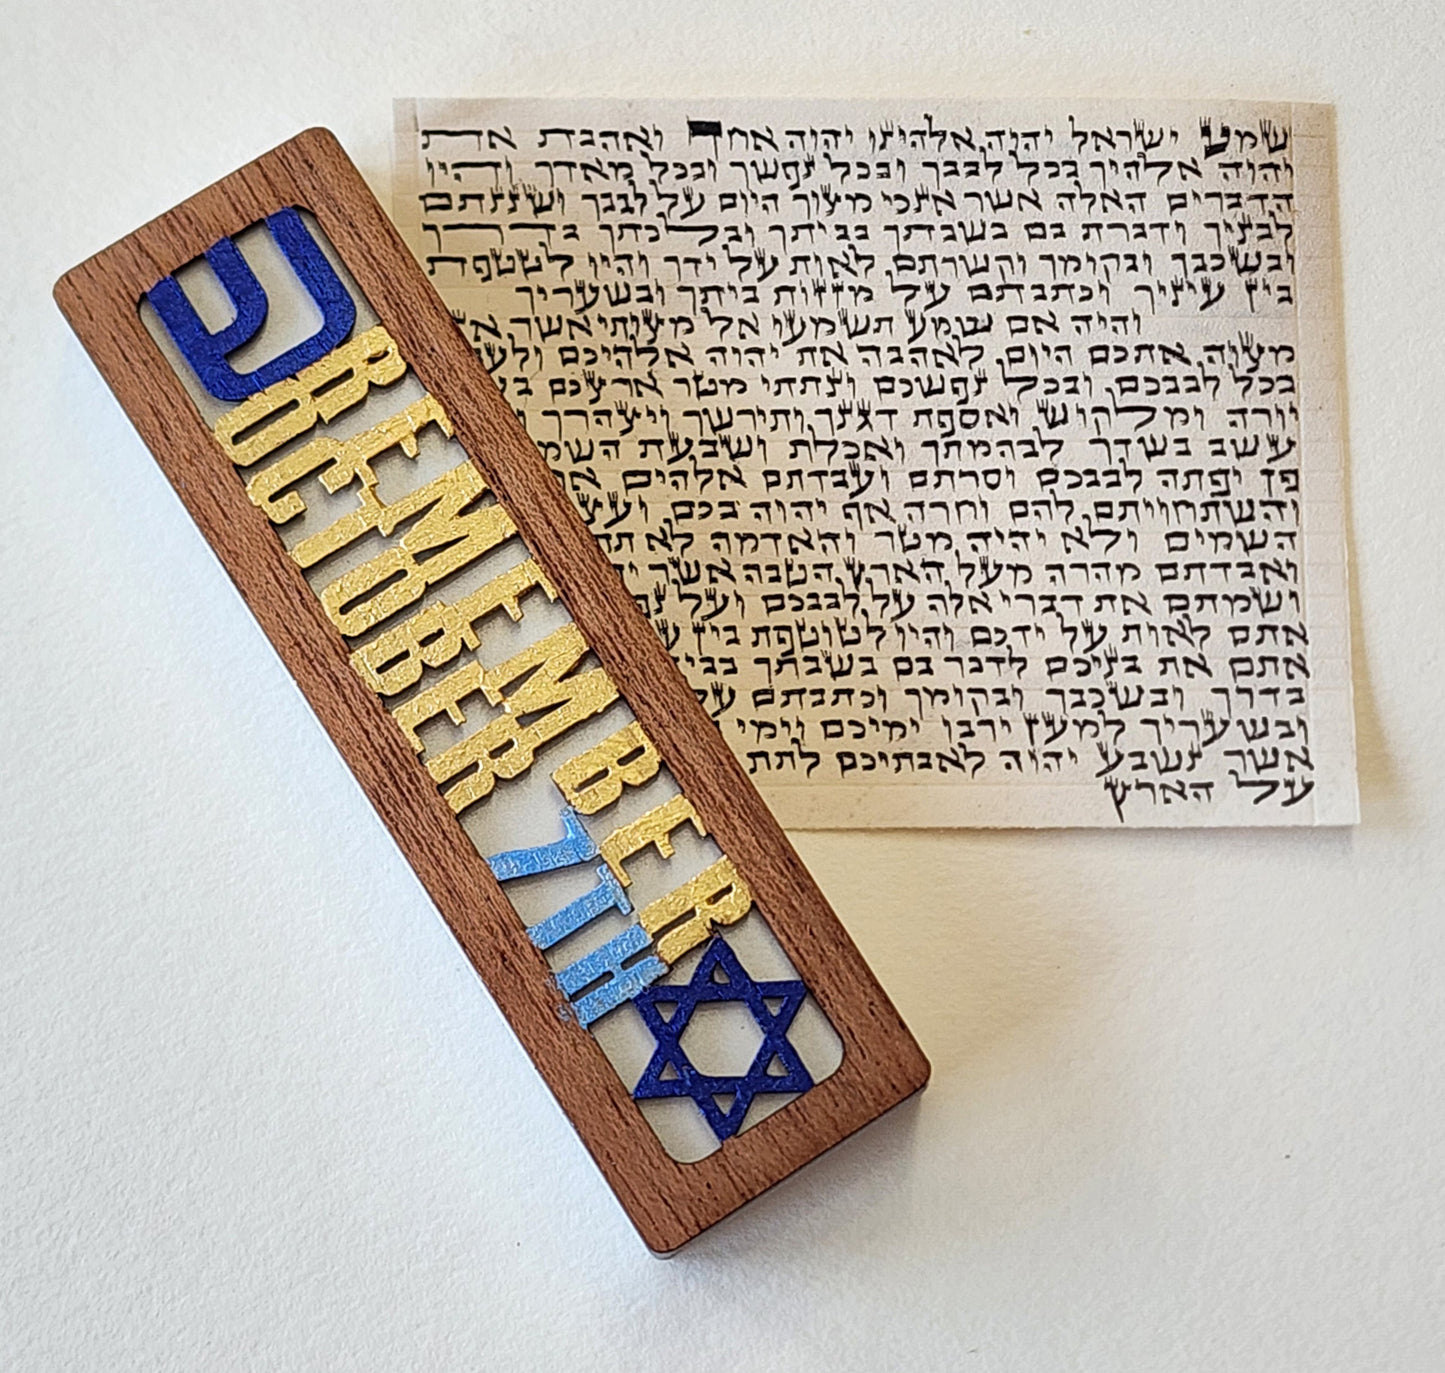 ש
REMEMBER
OCTOBER
7TH
שמע ישראל יהוה אלהינו יהוה אחד ואהבת את
יהוה אלהיך בכל לבבך ובכל נפשך ובכל מאדך והיו
הדברים האלה אשר אנכי מצוך היום על לבבך ושננתם
לבניך ודברת בם בשבתך בביתך ובלכתך בדרך
ובשכבך ובקומך וקשרתם לאות על ידך והיו לטטפת
בין עיניך וכתבתם על מזזות ביתך ובשעריך
והיה אם שמע תשמעו אל מצותי אשר
מצוה אתכם היום לאהבה את יהוה אלהיכם
בכל לבבכם ובכל נפשכם ונתתי מטר ארצכם
יורה ומלקוש ואספת דגנך ותירשך ויצהרך
עשב בשדך לבהמתך ואכלת ושבעת
פן יפתה לבבכם וסרתם ועבדתם אלהים
והשתחויתם להם וחרה אף יהוה בכם
השמים ולא יהיה מטר והאדמה לא
ואבדתם מהרה מעל הארץ הטבה אשר
ושמתם את דברי אלה על לבבכם ועל
אתם לאות על ידכם והיו לטוטפת בין
אתם את בניכם לדבר בם בשבתך
בדרך ובשכבך ובקומך וכתבתם על
ובשעריך למען ירבו ימיכם וימי
אשר נשבע יהוה לאבתיכם לתת
על הארץ